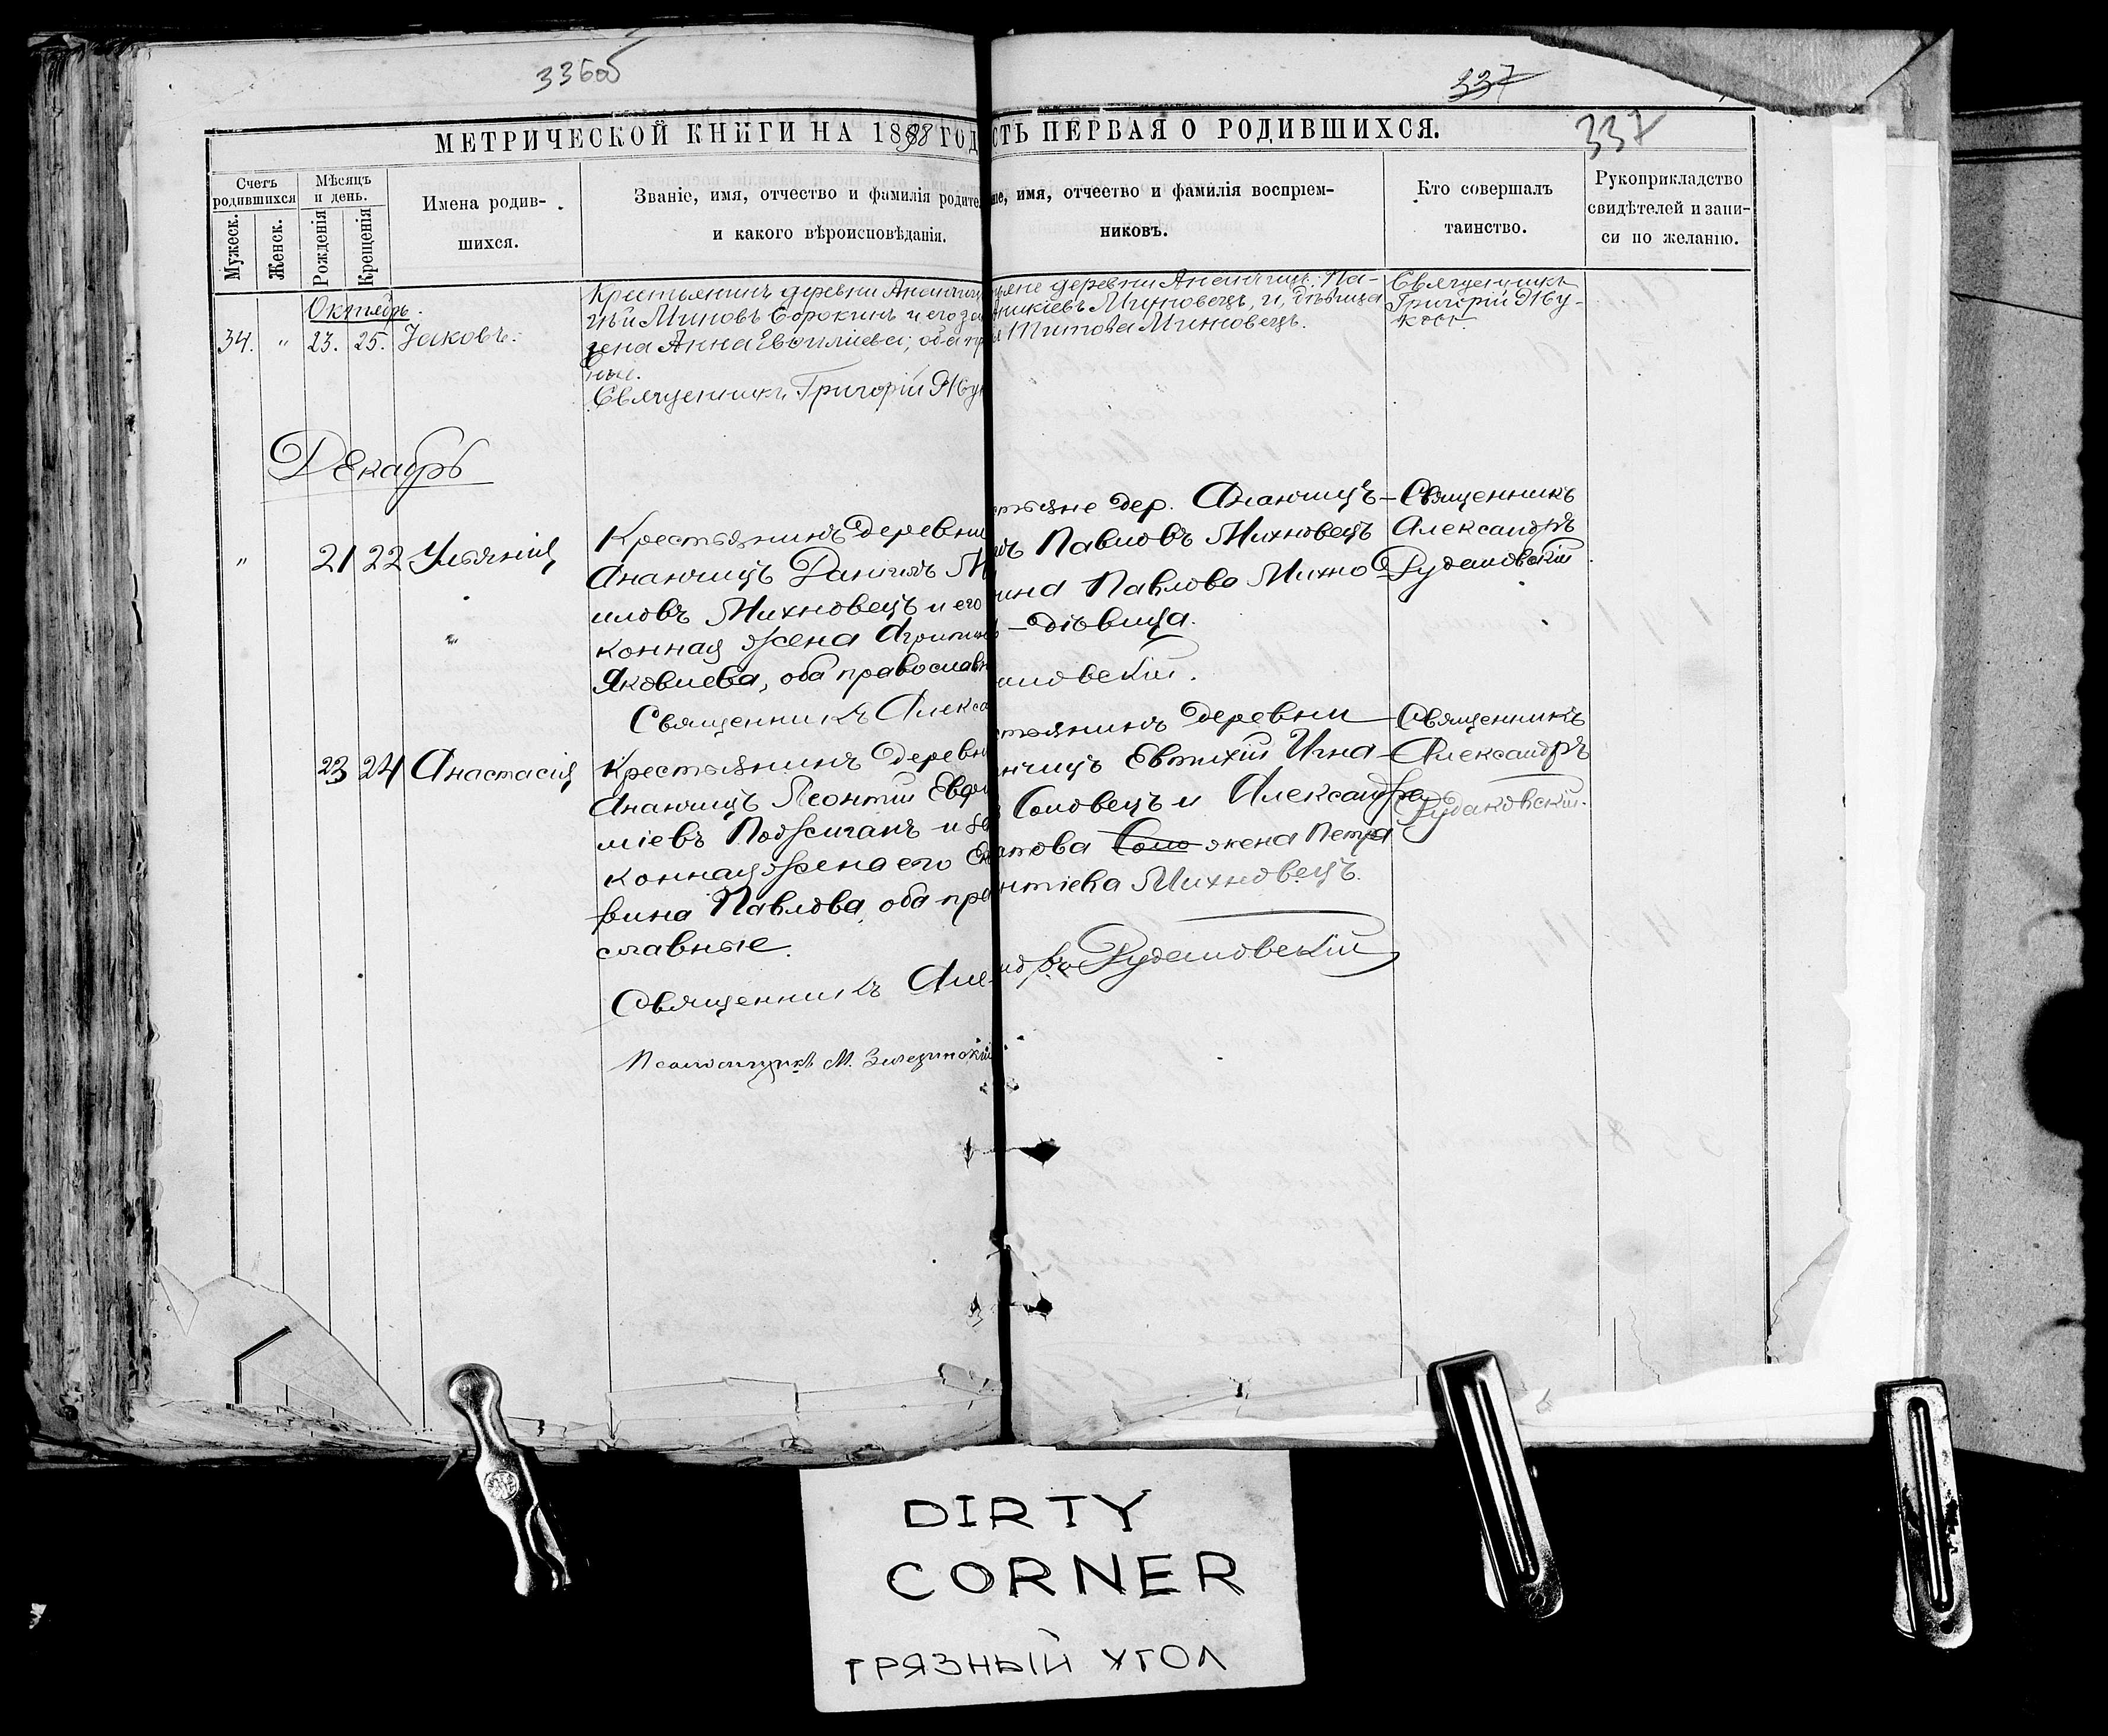 336об
337
337
МЕТРИЧЕСКОЙ КНИГИ НА 1888 ГОД
СТЬ ПЕРВАЯ О РОДИВШИХСЯ.
Счетъ родившихся
Мѣсяцъ и день.
Мужеск.
Женск.
Рожденія
Крещенія
Имена родив-
шихся.
Званіе, имя, отчество и фамилія родите
и какого вѣроисповѣданія.
іе, имя, отчество и фамилія воспріем-
никовъ.
Кто совершалъ
таинство.
Рукоприкладство
свидѣтелей и запи-
си по желанію.
Октябрь.
34. " 23. 25. Іаковъ.
Крестьянинъ деревни
Миновъ Сорокинъ и его за
жена Анна Василіева; оба пр
ные.
Священникъ Григорій Жу
деревни Ананчицъ: Па-
Михновецъ, и, дѣвица
Титова Михновецъ.
Священникъ
Григорій Жу-
Декабрь
" 21 22 Ульянія
Крестьянинъ деревни
Ананчицъ Даніилъ М
иловъ Михновецъ и его
конная жена
Яковлева, оба православн
Священникъ Алекса
стьяне дер. Ананчицъ
ъ Павловъ Михновецъ
ина Павлова Михно
– дѣвица.
Священникъ
Александръ
23 24 Анастасія
Крестьянинъ деревн
Ананчицъ Леонтій Евф
міевъ и за
конная жена его Ек
рина Павлова, оба пра
славные.
Священникъ Але
стьянинъ деревни
нчицъ Евтихій Игна
Соловецъ и Александра
атова Соло жена Петра
нтіева Михновецъ.
Священникъ
Александръ
Псаломщикъ М.
DIRTY
CORNER
ГРЯЗНЫЙ УГОЛ